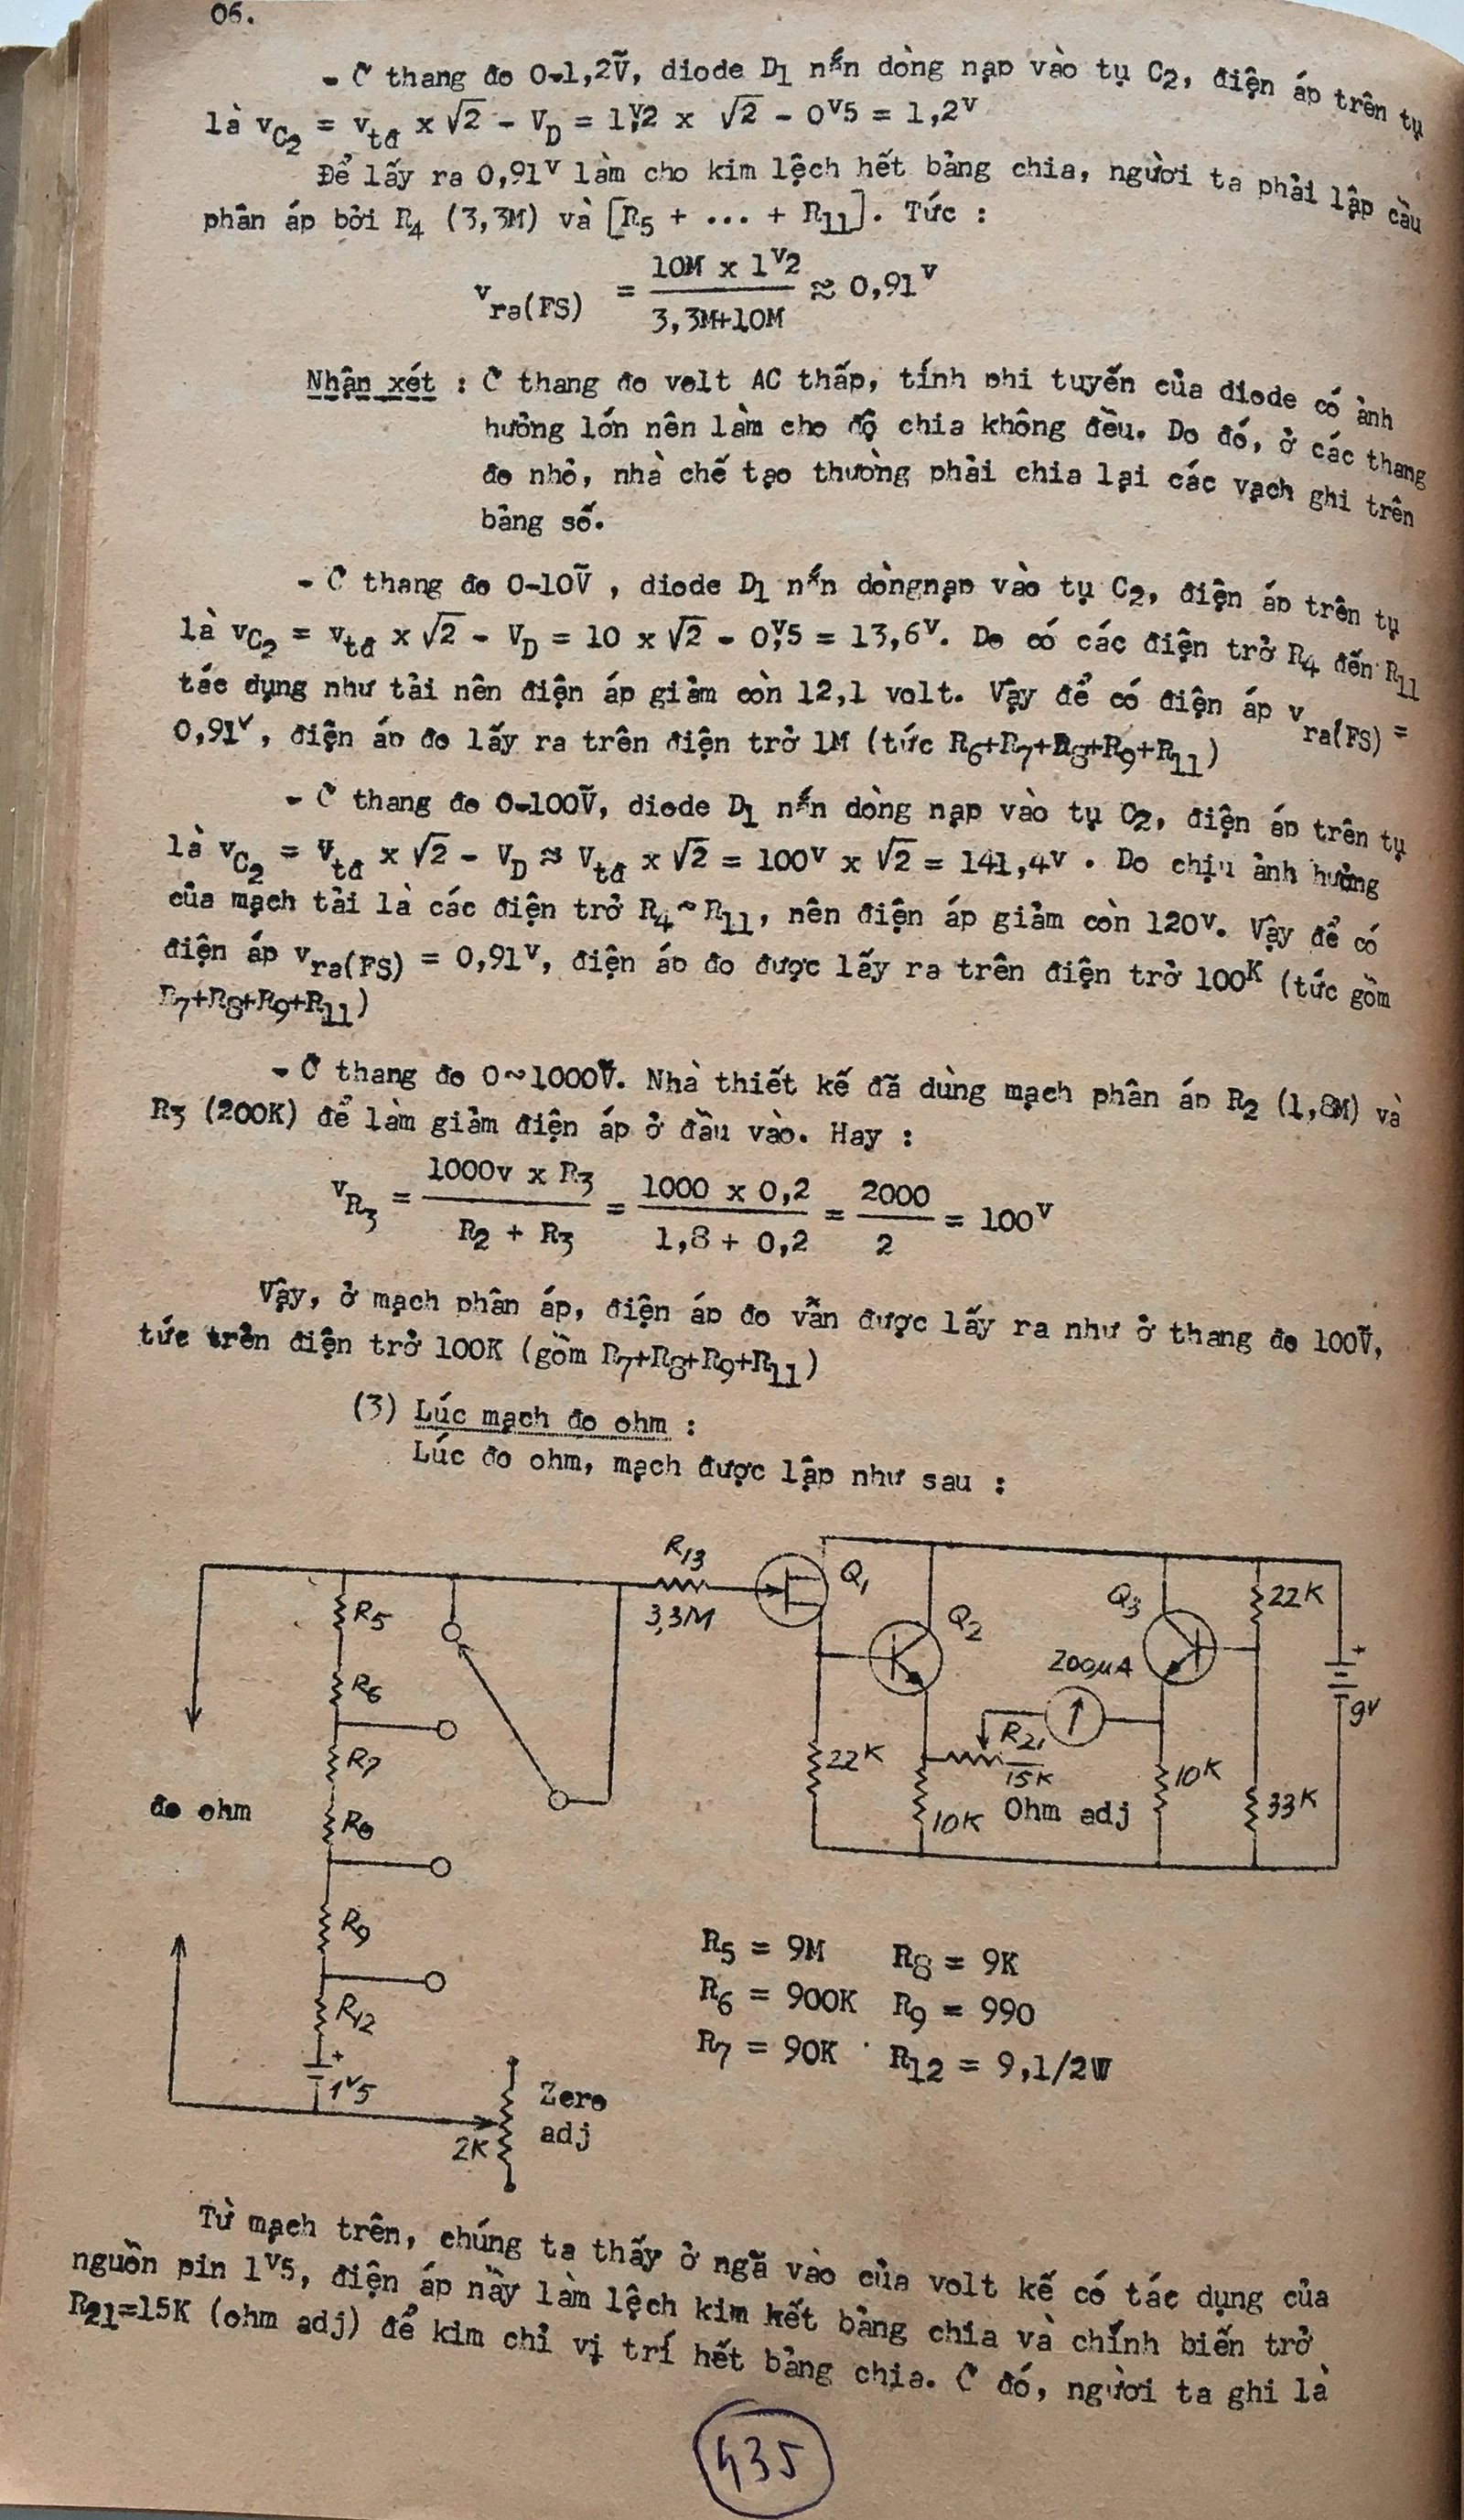 06.
- Ở thang đo 0-1,2Ṽ, diode D1 nắn dòng nạp vào tụ C2, điện áp trên tụ
là vC2 = vtđ x √2 - VD = 1V2 x √2 - 0V5 = 1,2V
Để lấy ra 0,91V làm cho kim lệch hết bảng chia, người ta phải lập cầu
phân áp bởi R4 (3,3M) và [R5 + ... + R11]. Tức :
vra(FS) = 10M x 1V2 / 3,3M+10M ≈ 0,91V
Nhận xét : Ở thang đo volt AC thấp, tính phi tuyến của diode có ảnh
hưởng lớn nên làm cho độ chia không đều. Do đó, ở các thang
đo nhỏ, nhà chế tạo thường phải chia lại các vạch ghi trên
bảng số.
- Ở thang đo 0-10Ṽ , diode D1 nắn dòngnạp vào tụ C2, điện áp trên tụ
là vC2 = vtđ x √2 - VD = 10 x √2 - 0V5 = 13,6V. Do có các điện trở R4 đến R11
tác dụng như tải nên điện áp giảm còn 12,1 volt. Vậy để có điện áp vra(FS) =
0,91V, điện áp đo lấy ra trên điện trở 1M (tức R6+R7+R8+R9+R11)
- Ở thang đo 0-100Ṽ, diode D1 nắn dòng nạp vào tụ C2, điện áp trên tụ
là vC2 = Vtđ x √2 - VD ≈ Vtđ x √2 = 100V x √2 = 141,4V . Do chịu ảnh hưởng
của mạch tải là các điện trở R4~R11, nên điện áp giảm còn 120V. Vậy để có
điện áp vra(FS) = 0,91V, điện áp đo được lấy ra trên điện trở 100K (tức gồm
R7+R8+R9+R11)
- Ở thang đo 0~1000Ṽ. Nhà thiết kế đã dùng mạch phân áp R2 (1,8M) và
R3 (200K) để làm giảm điện áp ở đầu vào. Hay :
vR3 = 1000v x R3 / R2 + R3 = 1000 x 0,2 / 1,8 + 0,2 = 2000 / 2 = 100V
Vậy, ở mạch phân áp, điện áp đo vẫn được lấy ra như ở thang đo 100Ṽ,
tức trên điện trở 100K (gồm R7+R8+R9+R11)
(3) Lúc mạch đo ohm :
Lúc đo ohm, mạch được lập như sau :
R13
3,3M
Q1
Q2
Q3
22K
200µA
R5
R6
R7
R8
R9
R12
1V5
22K
R21
15K
Ohm adj
10K
10K
33K
+
9V
đo ohm
+
2K
Zero
adj
R5 = 9M R8 = 9K
R6 = 900K R9 = 990
R7 = 90K R12 = 9,1/2W
Từ mạch trên, chúng ta thấy ở ngã vào của volt kế có tác dụng của
nguồn pin 1V5, điện áp này làm lệch kim hết bảng chia và chính biến trở
R21=15K (ohm adj) để kim chỉ vị trí hết bảng chia. Ở đó, người ta ghi là
435